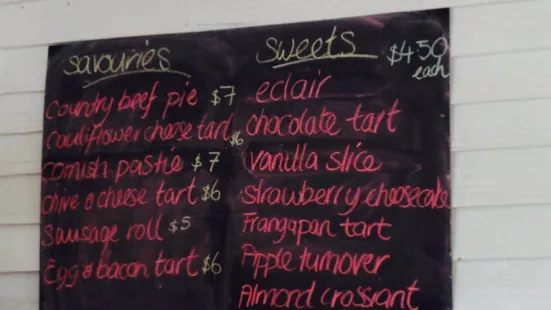 savouries
Country beef pie $7
Cauliflower cheese tart $6
cornish pastie $7
chive & cheese tart $6
Sausage roll $5
Egg & bacon tart $6
Sweets $4.50 each
eclair
chocolate tart
vanilla slice
strawberry cheesecake
Frangapan tart
Apple turnover
Almond crossiant